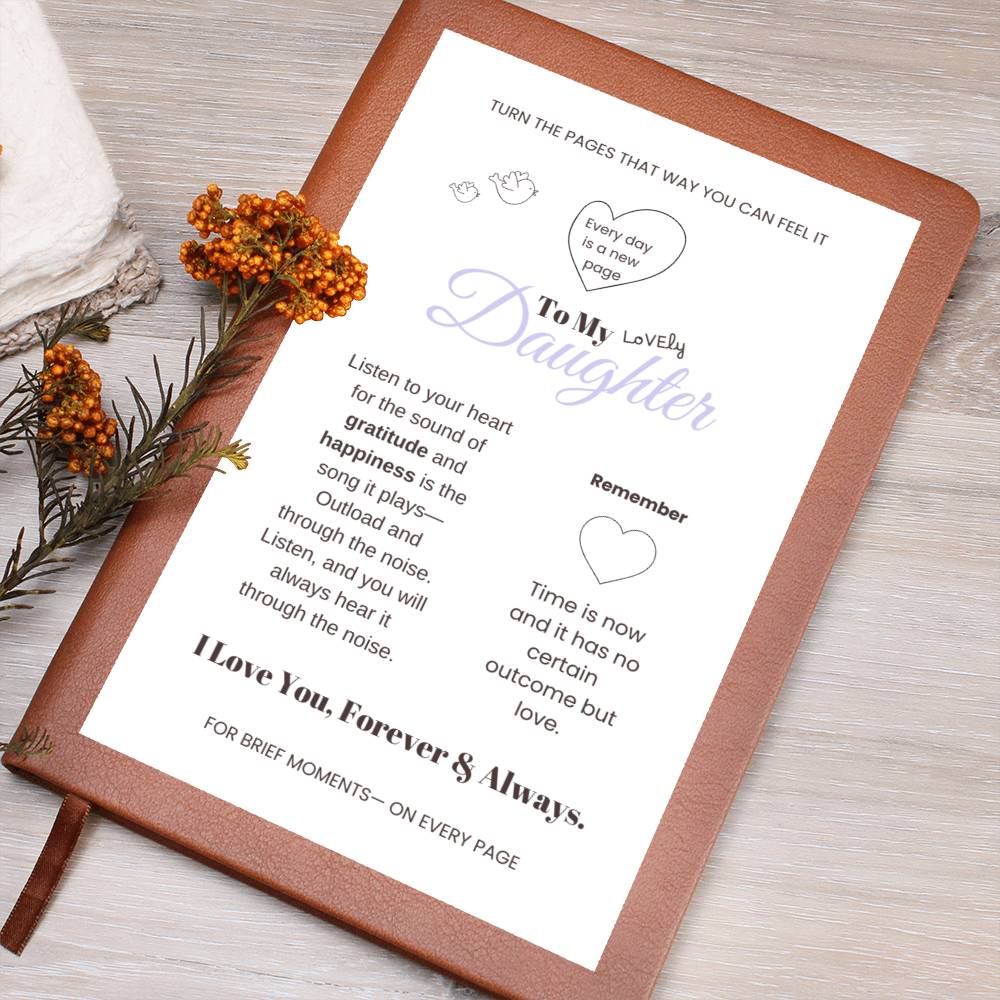 TURN THE PAGES THAT WAY YOU CAN FEEL IT
Every day
is a new
page
To My LoVEly
Daughter
Listen to your heart
for the sound of
gratitude and
happiness is the
song it plays—
Outload and
through the noise.
Listen, and you will
always hear it
through the noise.
Remember
Time is now
and it has no
certain
outcome but
love.
I Love You, Forever & Always.
FOR BRIEF MOMENTS— ON EVERY PAGE